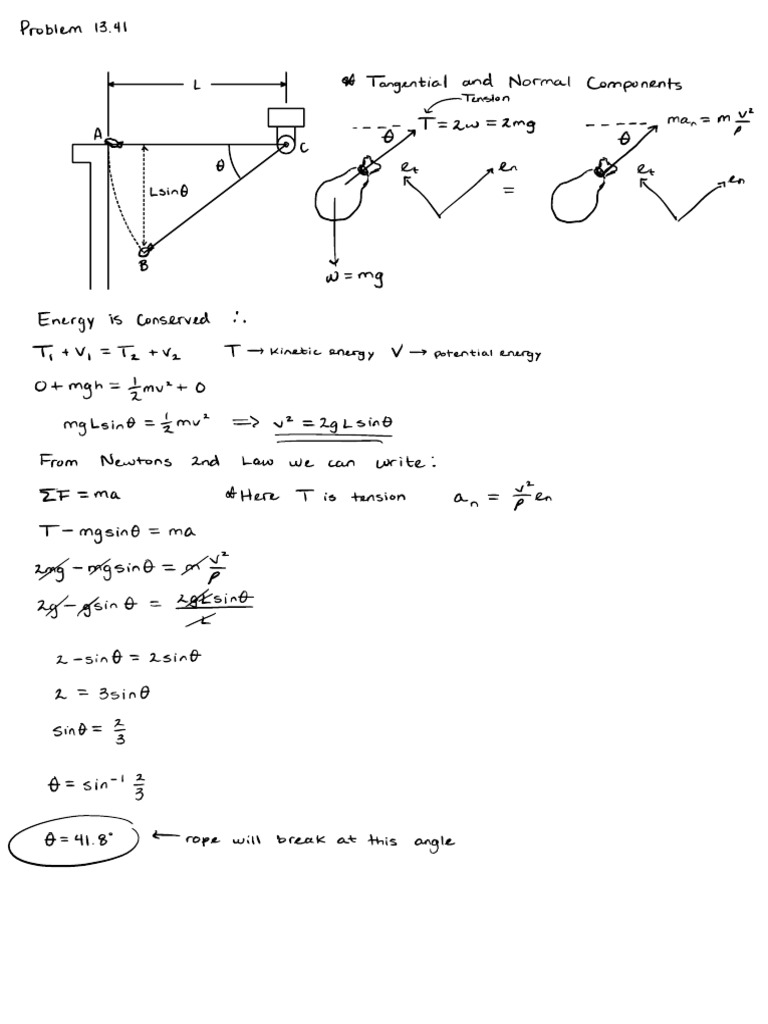 Problem 13.41
L
A
C
θ
Lsinθ
B
* Tangential and Normal Components
Tension
T = 2w = 2mg
θ
et
en
=
w = mg
man = m v²/ρ
θ
et
en
Energy is conserved ∴
T₁ + V₁ = T₂ + V₂ T → kinetic energy V → potential energy
0 + mgh = 1/2 mv² + 0
mgLsinθ = 1/2 mv² => v² = 2gLsinθ
From Newtons 2nd Law we can write:
ΣF = ma * Here T is tension an = v²/ρ en
T - mgsinθ = ma
2mg - mgsinθ = m v²/ρ
2g - gsinθ = 2gLsinθ/L
2 - sinθ = 2sinθ
2 = 3sinθ
sinθ = 2/3
θ = sin⁻¹ 2/3
θ = 41.8° ← rope will break at this angle